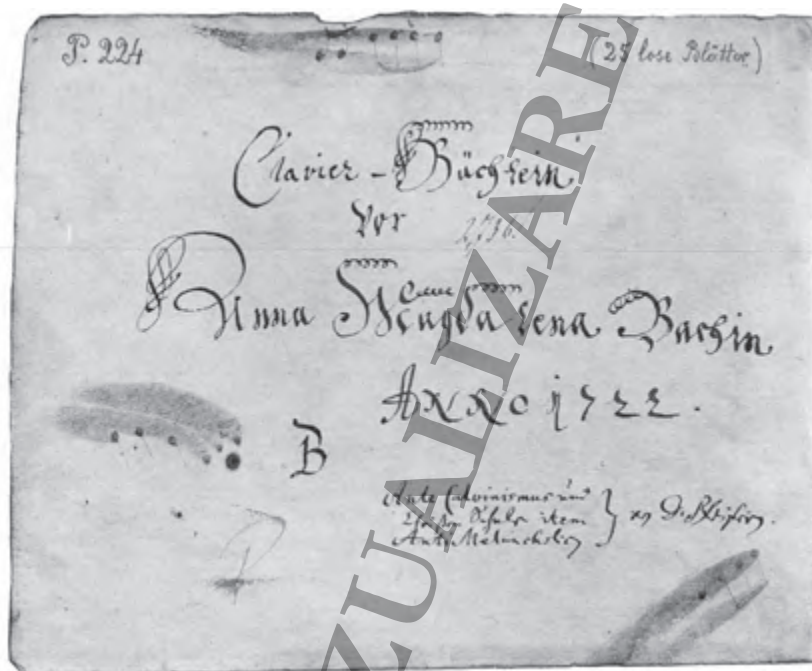 P. 224 (25 lose Blätter)
Clavier-Büchlein
vor
2,736.
Anna Magdalena Bachin
ANNO 1722.
B
Ante Calvinismus und
Schule item
Anti Melancholicy
ZUALIZARE